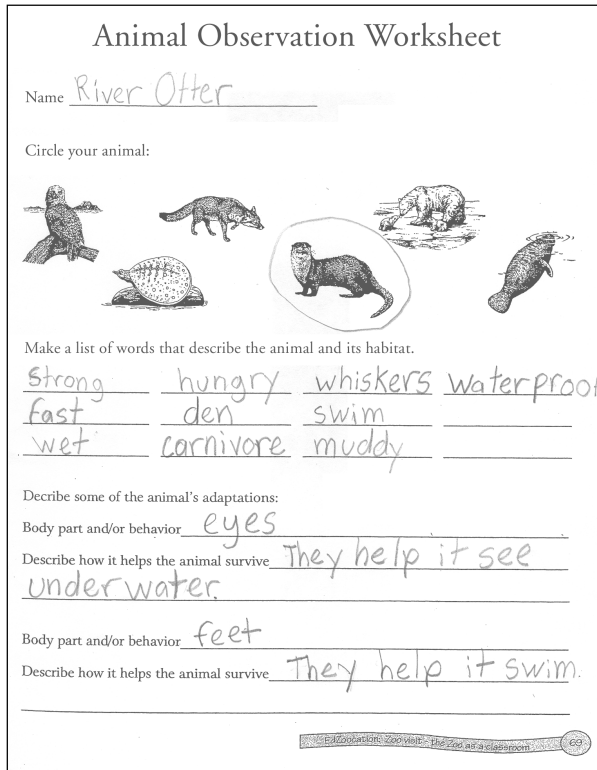 Animal Observation Worksheet
Name River Otter
Circle your animal:
Make a list of words that describe the animal and its habitat.
strong hungry whiskers waterproof
fast den swim
wet carnivore muddy
Decribe some of the animal's adaptations:
Body part and/or behavior eyes
Describe how it helps the animal survive They help it see
underwater.
Body part and/or behavior feet
Describe how it helps the animal survive They help it swim.
EdZoocation: Zoo visit - the Zoo as a classroom 69